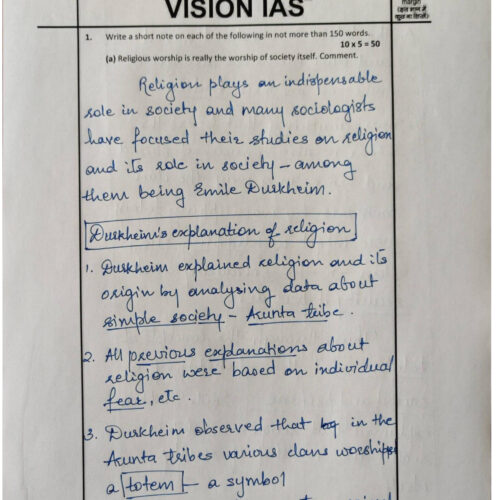 VISION IAS
margin
(इस भाग में
कुछ ना लिखें)
1. Write a short note on each of the following in not more than 150 words.
10 x 5 = 50
(a) Religious worship is really the worship of society itself. Comment.
Religion plays an indispensable
role in society and many sociologists
have focused their studies on religion
and its role in society – among
them being Emile Durkheim.
Durkheim's explanation of religion
1. Durkheim explained religion and its
origin by analysing data about
simple society – Arunta tribe.
2. All previous explanations about
religion were based on individual
fear, etc.
3. Durkheim observed that in the
Arunta tribes various clans worships
a totem – a symbol